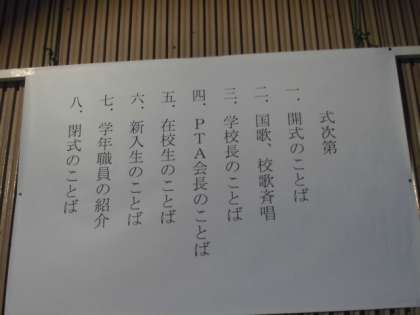 式次第
一．開式のことば
二．国歌、校歌斉唱
三．学校長のことば
四．ＰＴＡ会長のことば
五．在校生のことば
六．新入生のことば
七．学年職員の紹介
八．閉式のことば